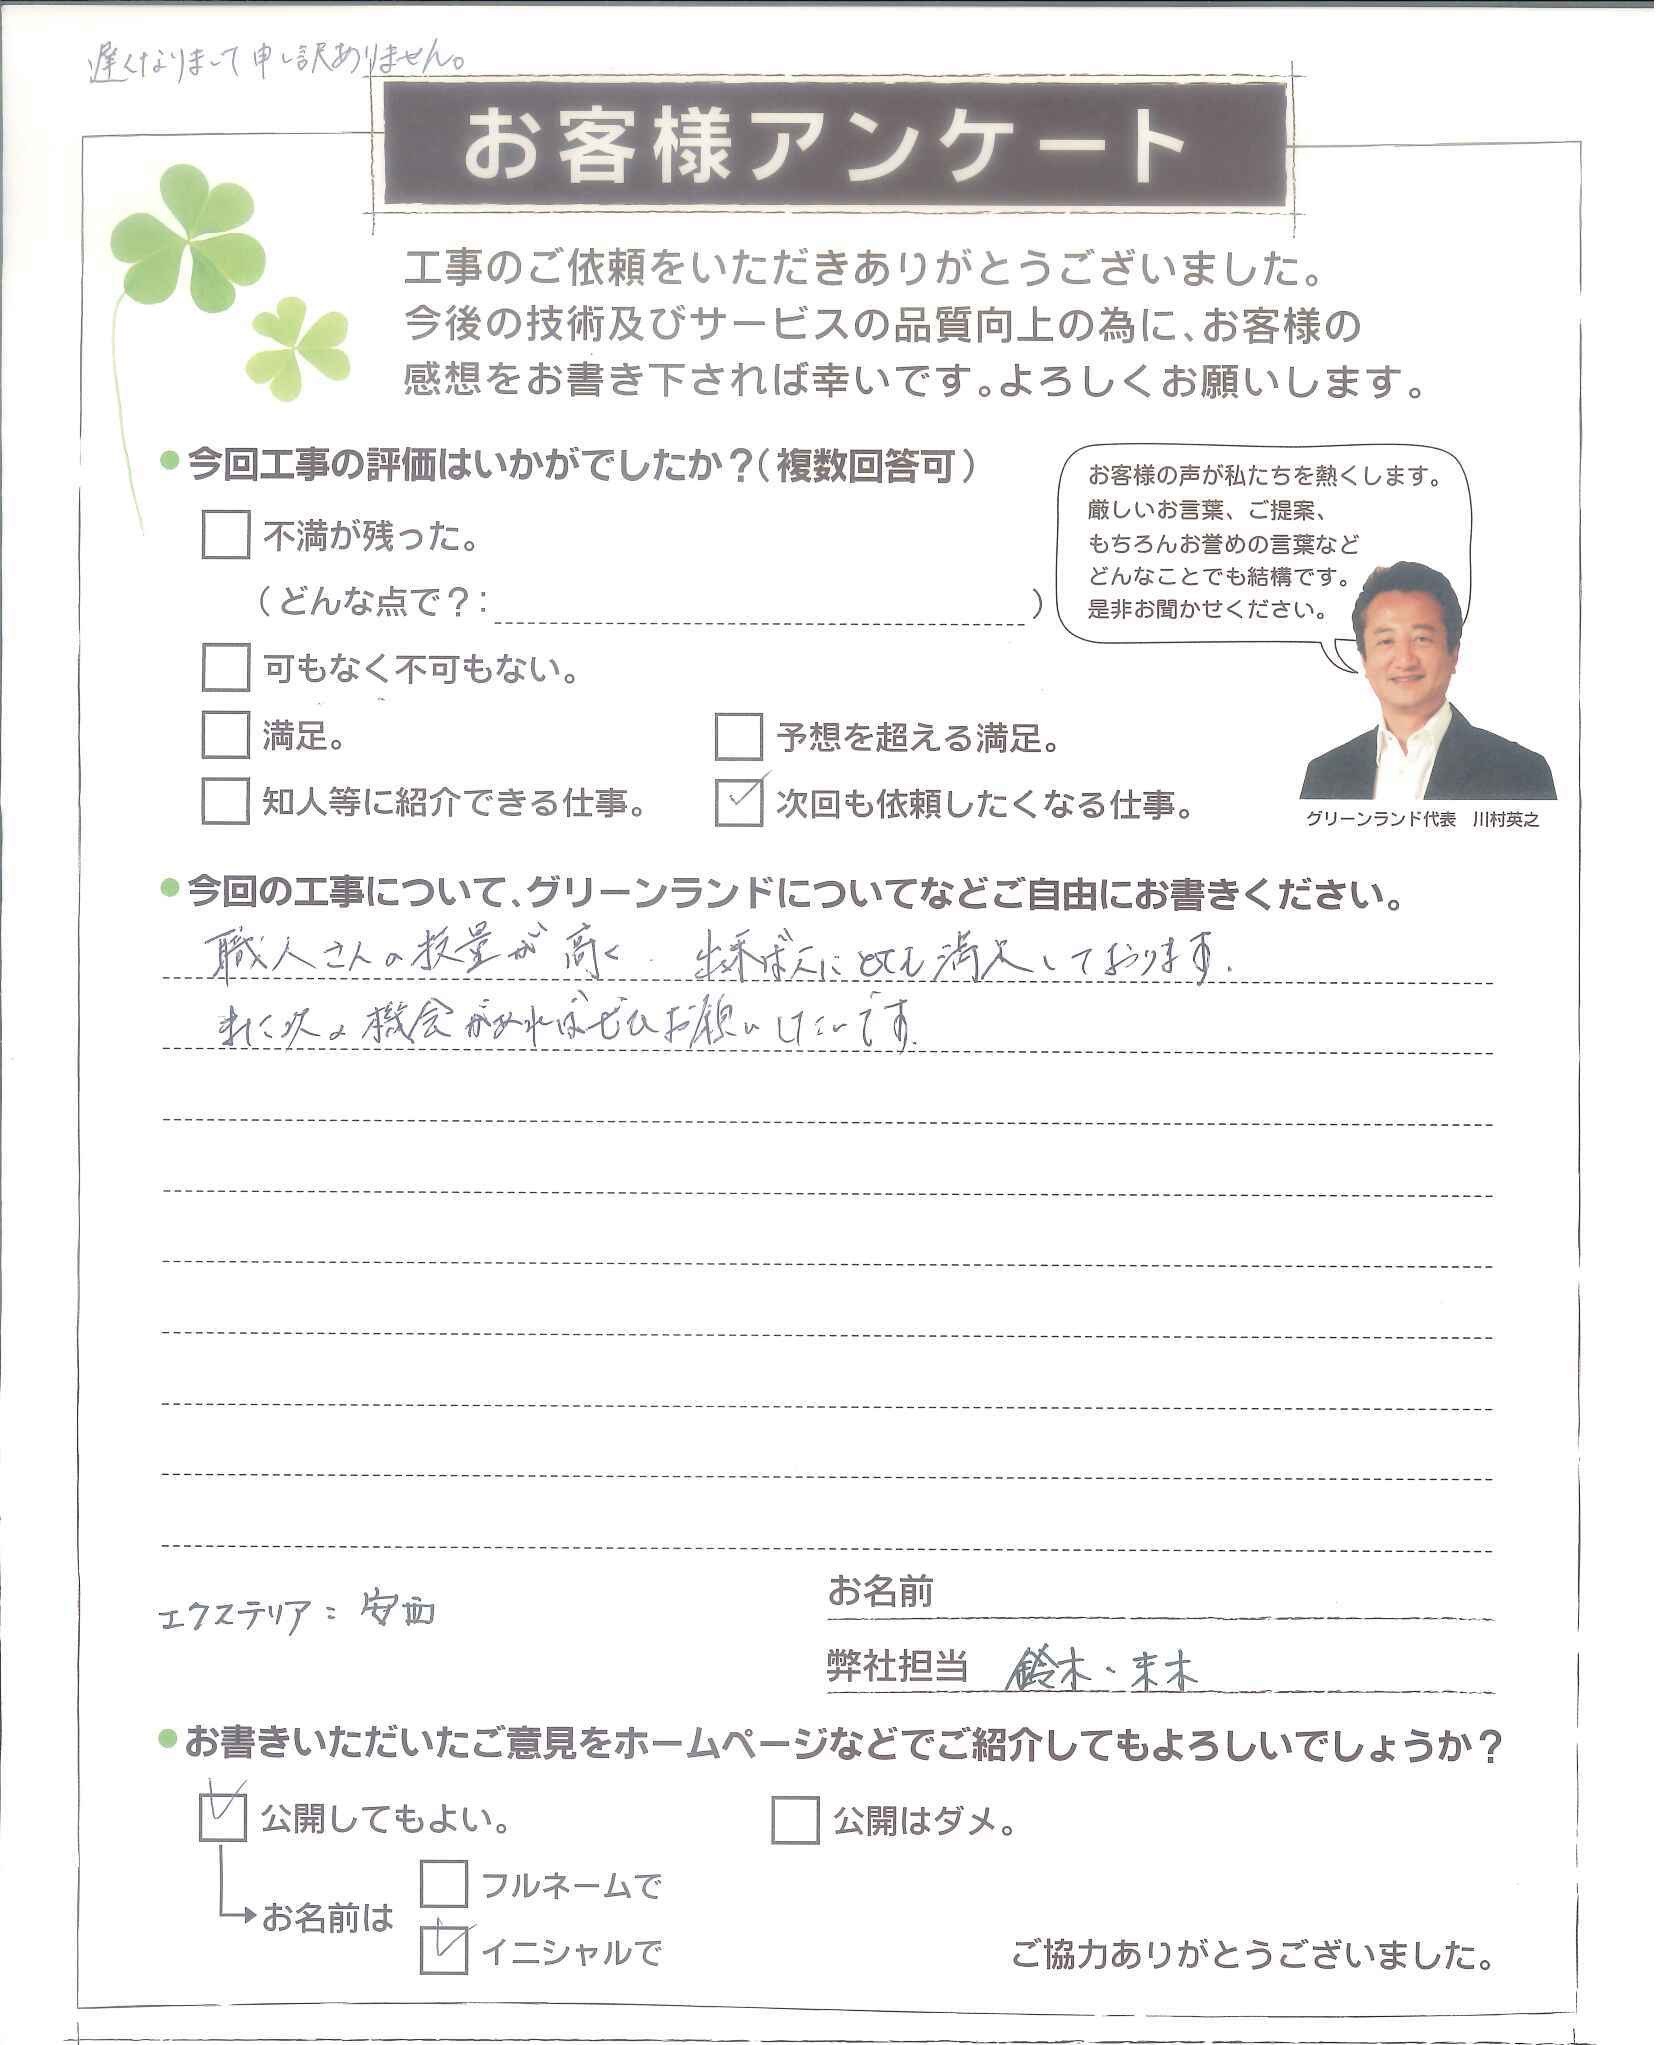 遅くなりまして申し訳ありません。
お客様アンケート
工事のご依頼をいただきありがとうございました。
今後の技術及びサービスの品質向上の為に、お客様の
感想をお書き下されば幸いです。よろしくお願いします。
今回工事の評価はいかがでしたか？（複数回答可）
不満が残った。
（どんな点で？： ）
可もなく不可もない。
満足。
予想を超える満足。
知人等に紹介できる仕事。
次回も依頼したくなる仕事。
お客様の声が私たちを熱くします。
厳しいお言葉、ご提案、
もちろんお誉めの言葉など
どんなことでも結構です。
是非お聞かせください。
グリーンランド代表 川村英之
今回の工事について、グリーンランドについてなどご自由にお書きください。
職人さんの技量が高く 出来ばえにとても満足しております.
また次の機会があればぜひお願いしたいです.
エクステリア：安西
お名前
弊社担当 鈴木・末木
お書きいただいたご意見をホームページなどでご紹介してもよろしいでしょうか？
公開してもよい。
公開はダメ。
お名前は
フルネームで
イニシャルで
ご協力ありがとうございました。